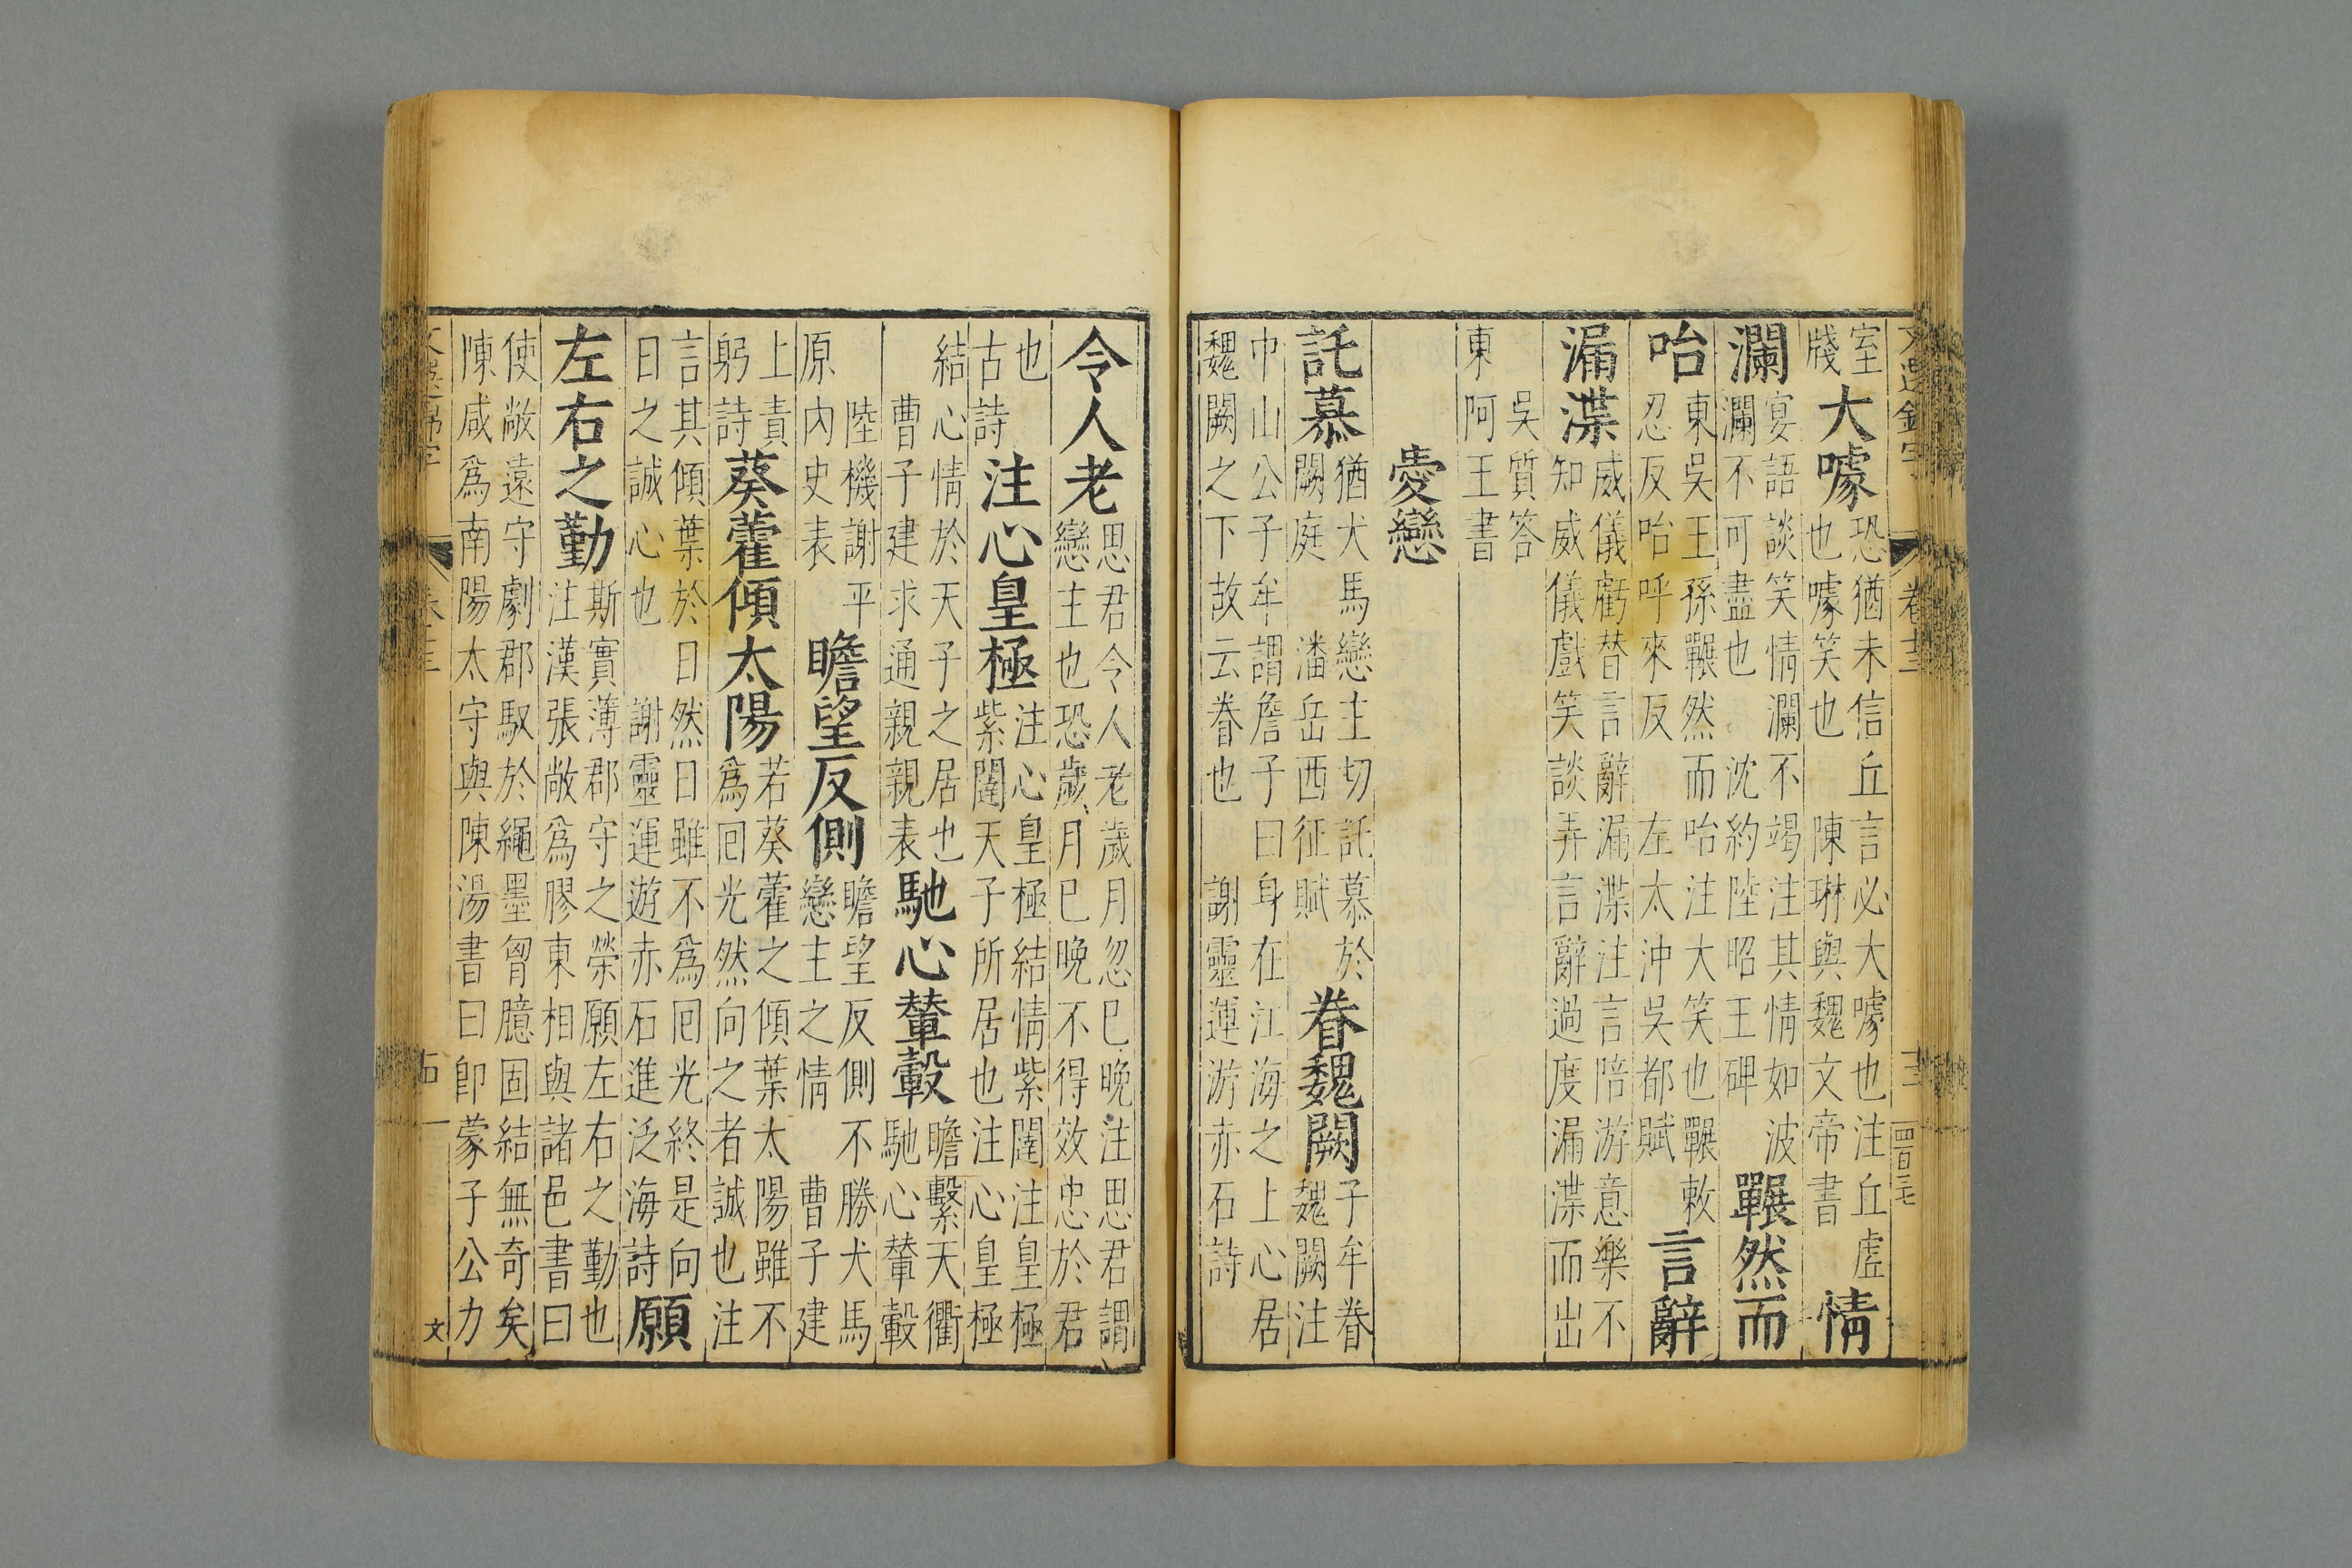 室
牋
大噱
恐猶未信丘言必大噱也注丘虛
也噱笑也　陳琳與魏文帝書
情
瀾
宴語談笑情瀾不竭注其情如波
瀾不可盡也　沈約陸昭王碑
囅然而
咍
東吳王孫囅然而咍注大笑也囅敕
忍反咍呼來反　左太沖吳都賦
言辭
漏渫
威儀虧替言辭漏渫注言陪游意樂不
知威儀戲笑談弄言辭過度漏渫而出
吳質答
東阿王書
愛戀
託慕
猶犬馬戀主切託慕於
闕庭　潘岳西征賦
眷魏闕
子牟眷
魏闕注
中山公子牟謂詹子曰身在江海之上心居
魏闕之下故云眷也　謝靈運游赤石詩
卷十三
十三
四百三七
令人老
思君令人老歲月忽已晚注思君謂
戀主也恐歲月已晚不得效忠於君
也
古詩
注心皇極
注心皇極結情紫闥注皇極
紫闥天子所居也注心皇極
結心情於天子之居也
曹子建求通親親表
馳心輦轂
瞻繫天衢
馳心輦轂
陸機謝平
原內史表
瞻望反側
瞻望反側不勝犬馬
戀主之情　曹子建
上責
躬詩
葵藿傾太陽
若葵藿之傾葉太陽雖不
爲囘光然向之者誠也注
言其傾葉於日然日雖不爲囘光終是向
日之誠心也　謝靈運遊赤石進泛海詩
願
左右之勤
斯實薄郡守之榮願左右之勤也
注漢張敞爲膠東相與諸邑書曰
使敞遠守劇郡馭於繩墨胷臆固結無奇矣
陳咸爲南陽太守與陳湯書曰卽蒙子公力
文